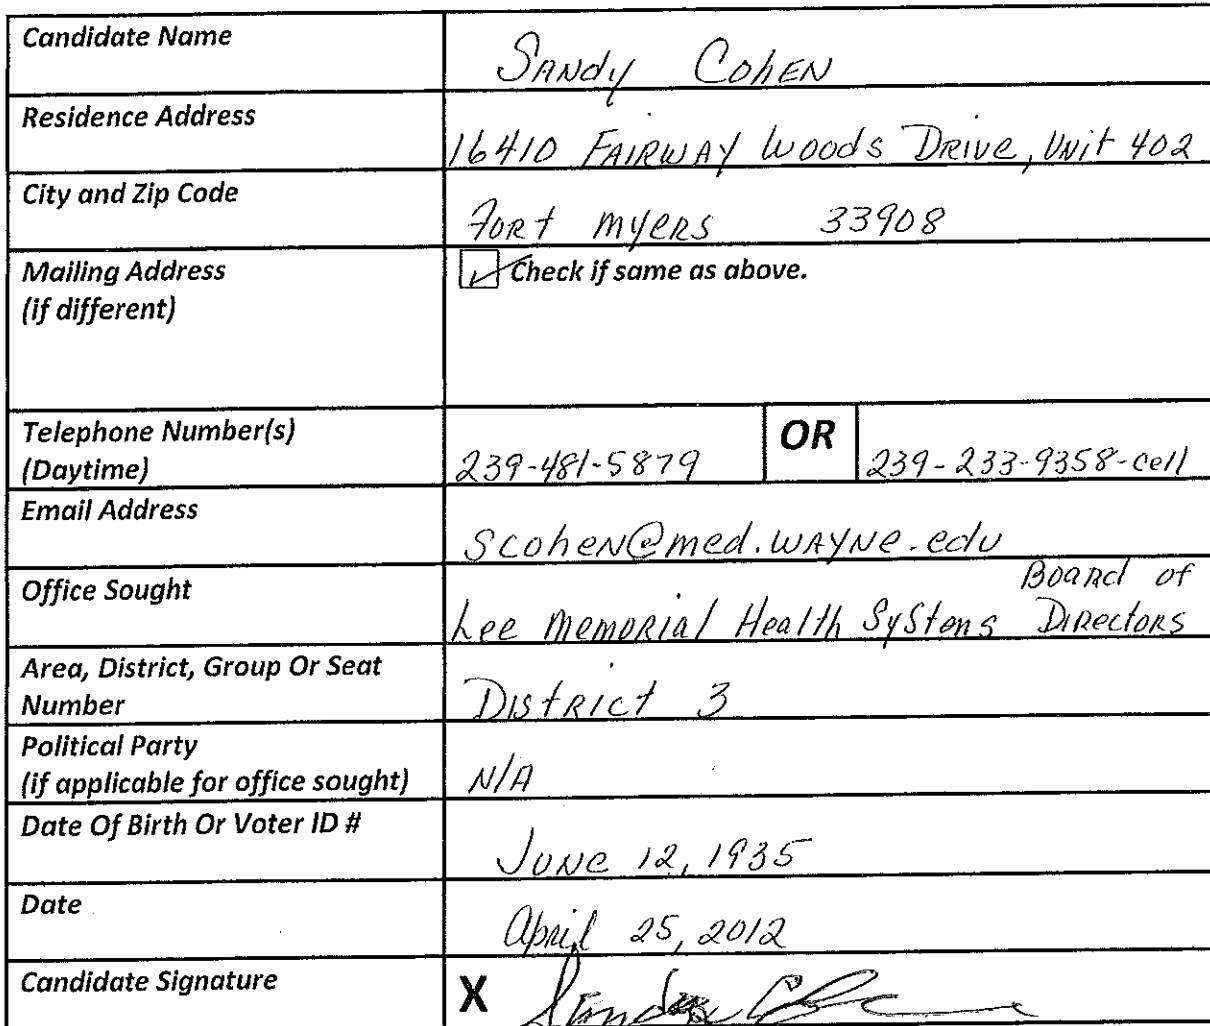 Candidate Name
Sandy Cohen
Residence Address
16410 Fairway Woods Drive, Unit 402
City and Zip Code
Fort Myers 33908
Mailing Address
(if different)
Check if same as above.
Telephone Number(s)
(Daytime)
239-481-5879 OR 239-233-9358-cell
Email Address
scohen@med.wayne.edu
Office Sought
Board of
Lee Memorial Health Systems Directors
Area, District, Group Or Seat
Number
District 3
Political Party
(if applicable for office sought)
N/A
Date Of Birth Or Voter ID #
June 12, 1935
Date
April 25, 2012
Candidate Signature
X